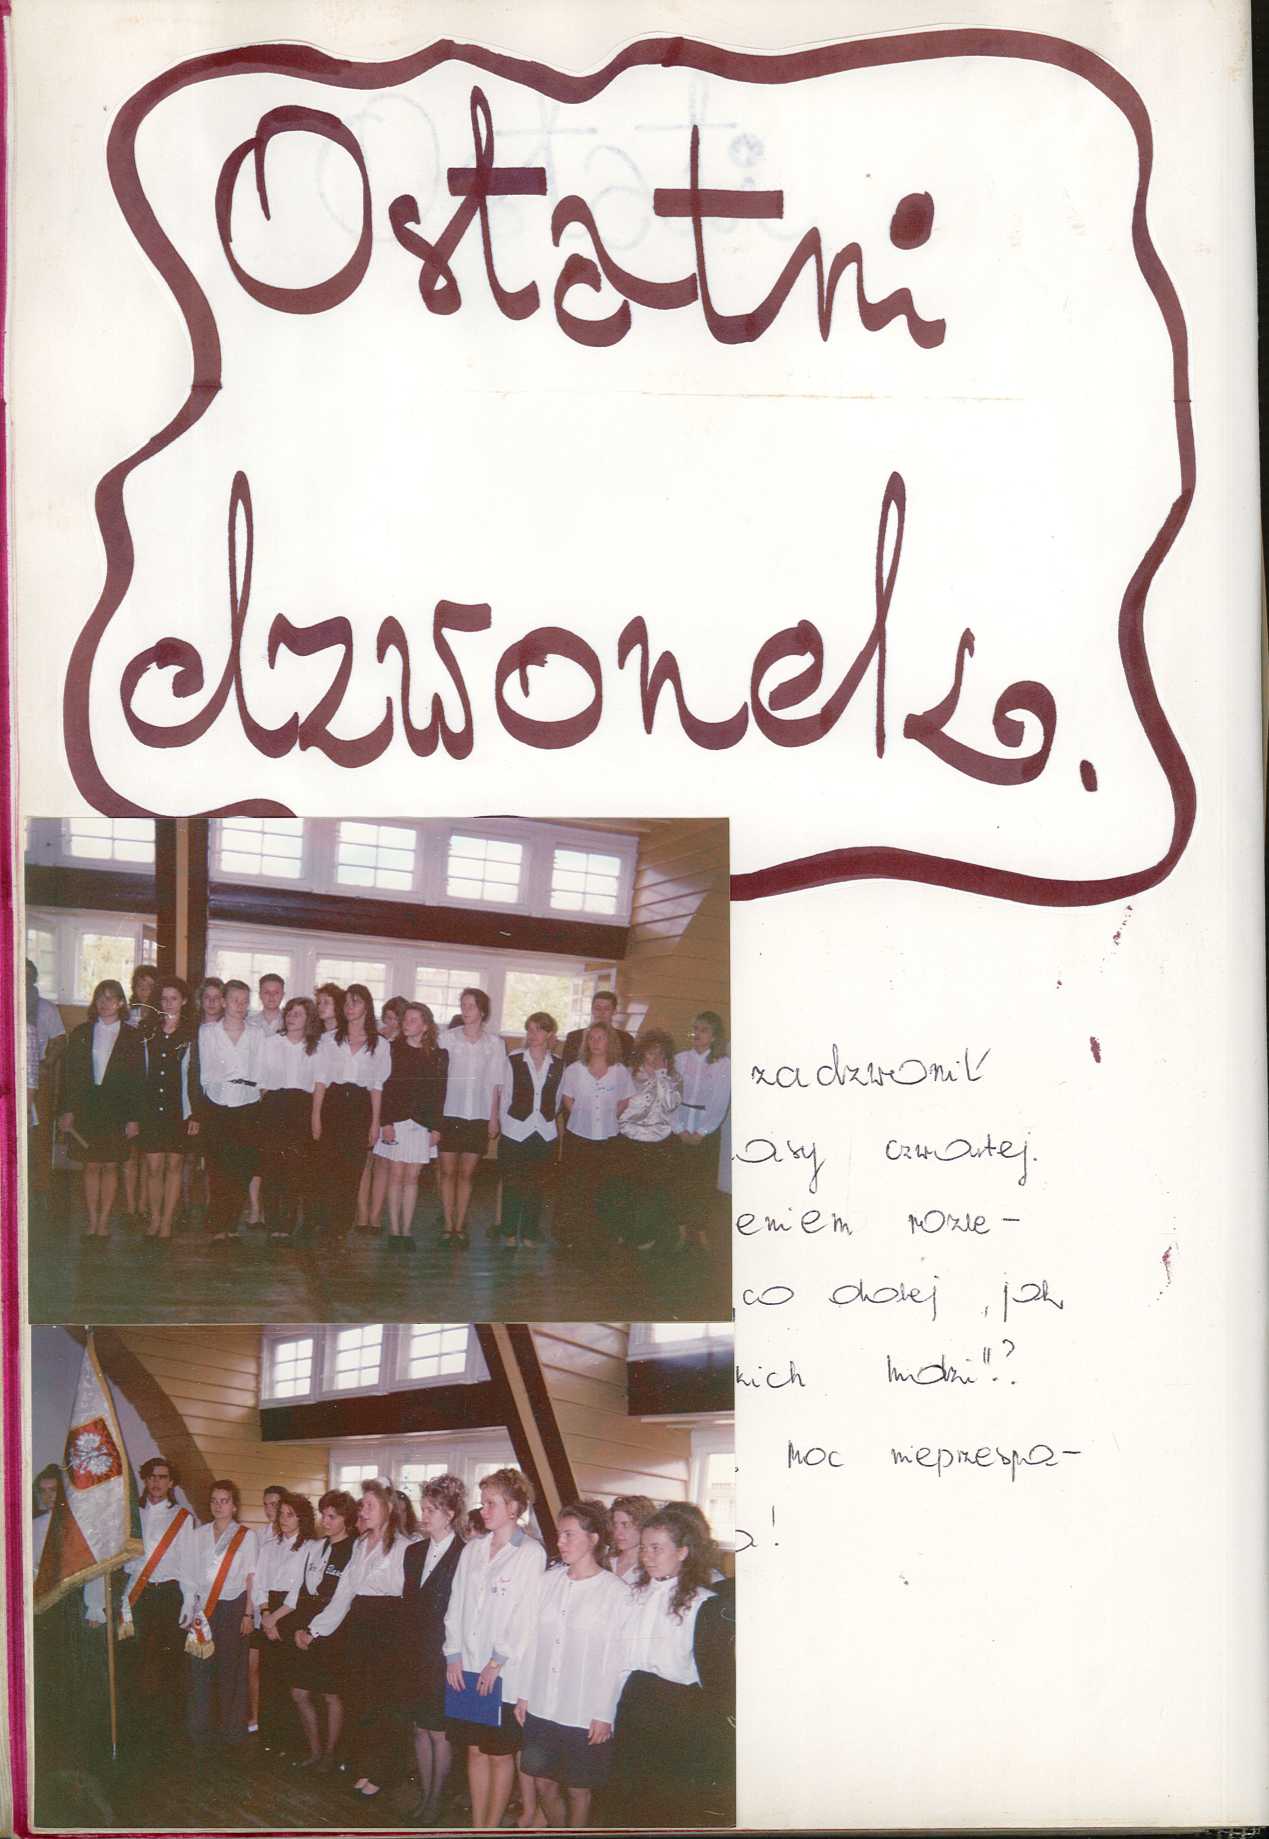 Ostatni
dzwonek.
zadzwonił
asy czwartej.
eniem rozle-
co dalej, jak
kich ludzi"?
moc nieprzespa-
a!